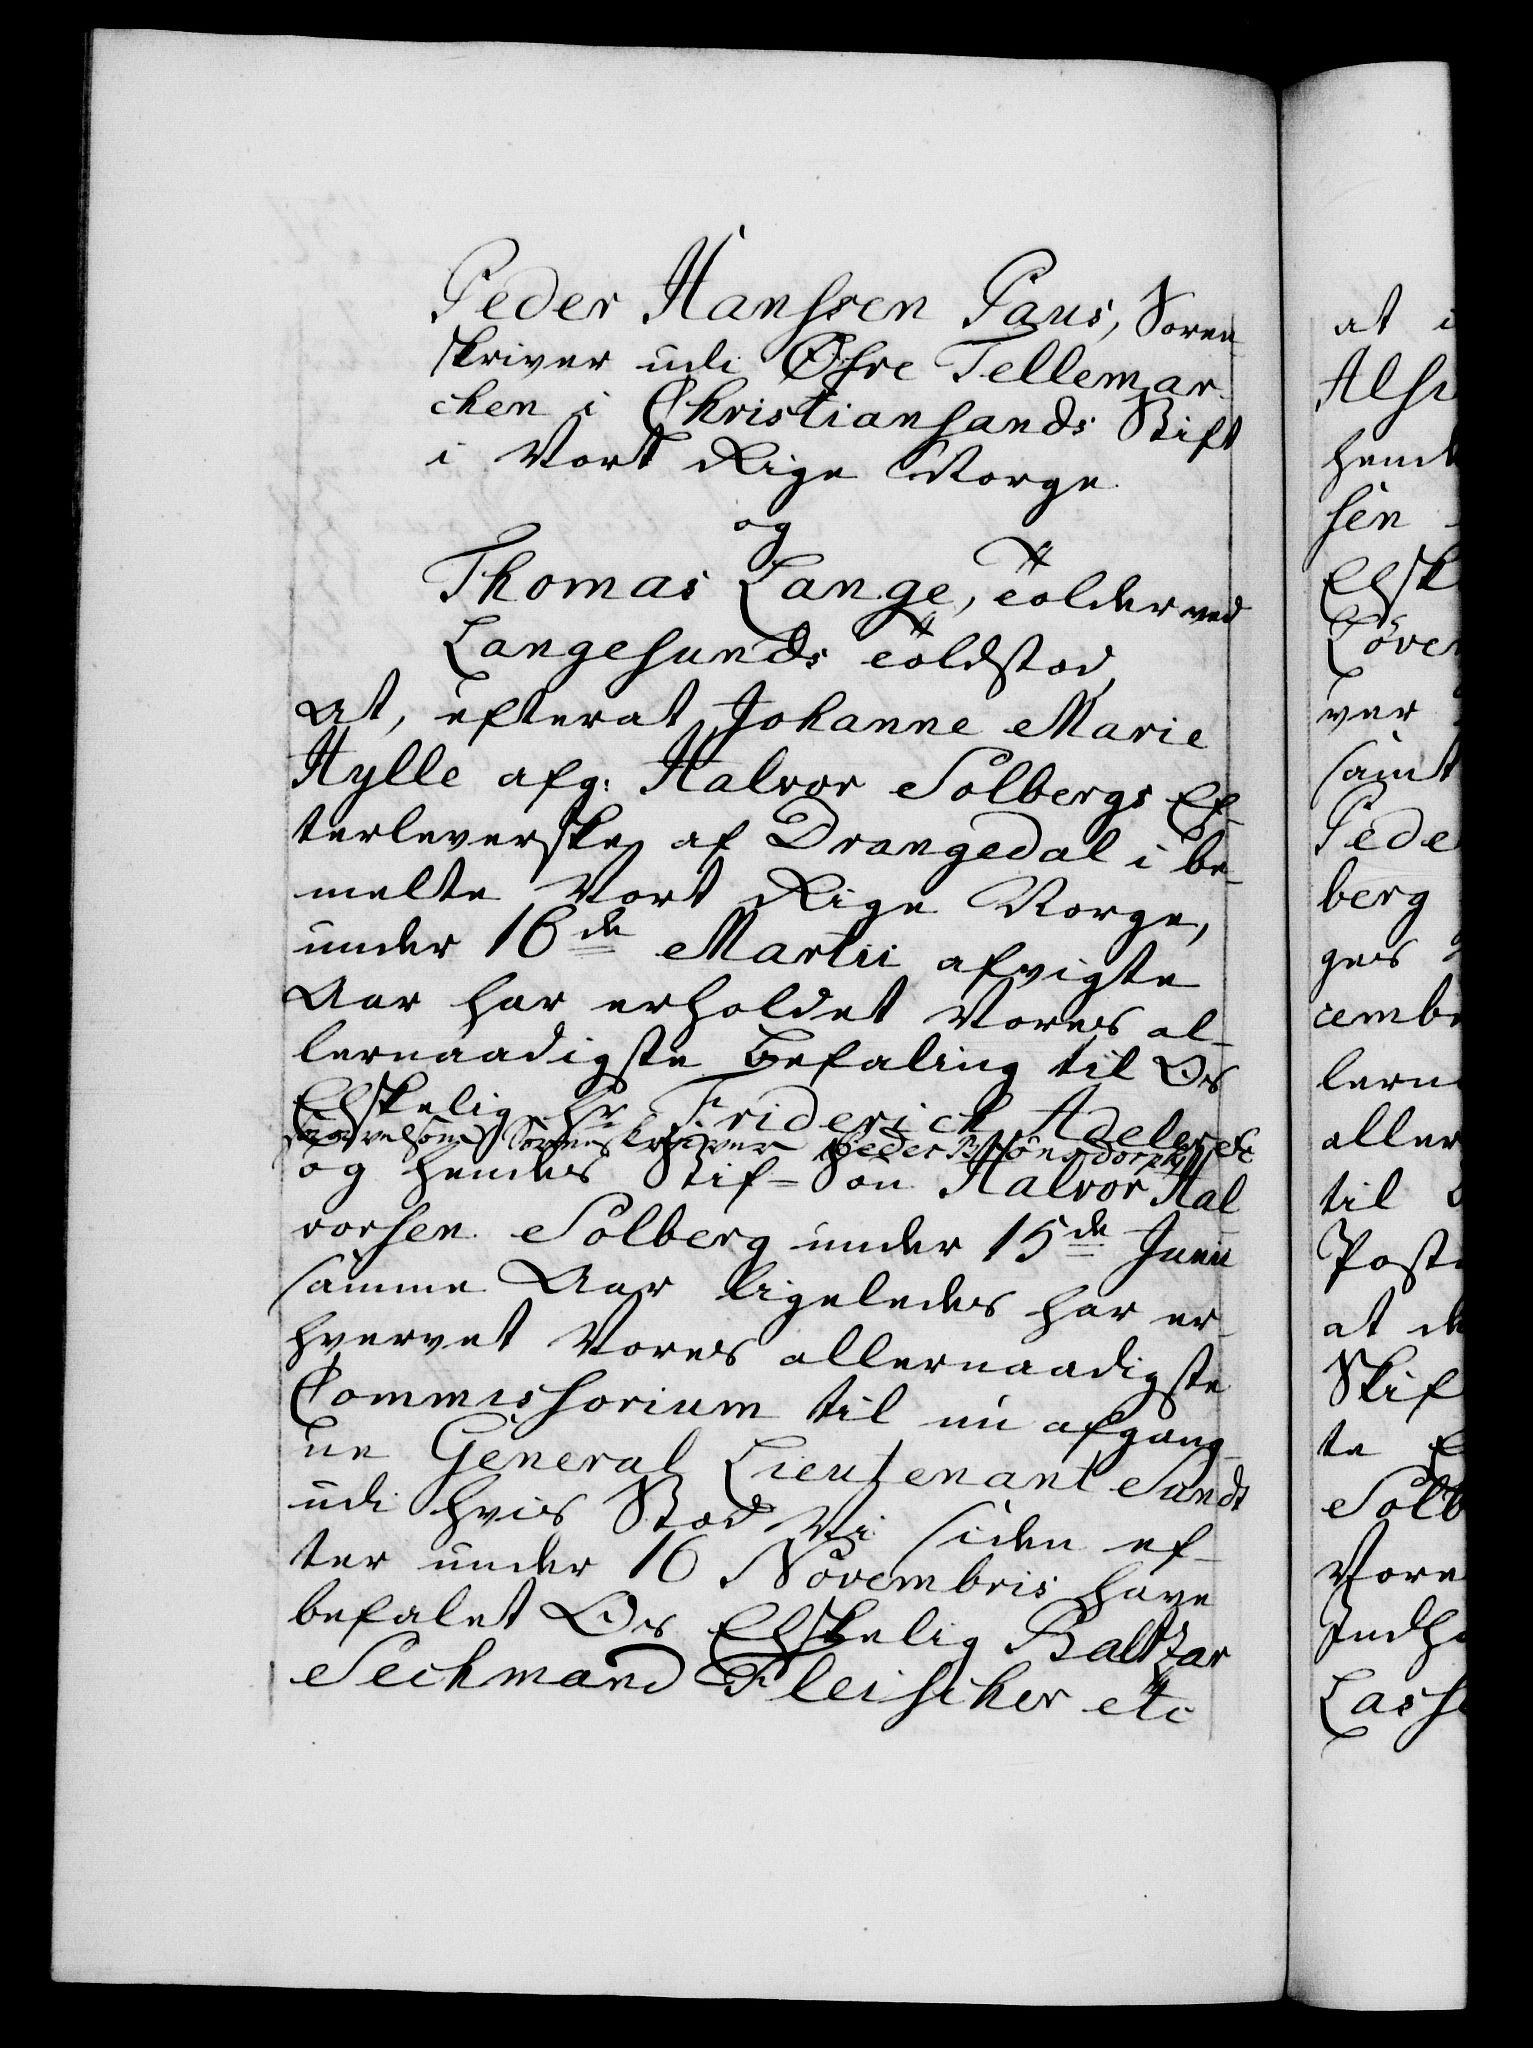 Peder Hanssen Paus, Soren-
skriver udi Øfre Tellemar-
cken i Christiansands Stift
i Vort Rige Norge.
og
Thomas Lange, Tolder ved
Langesunds Toldstod,
At, efterat Johanne Marie
Hylle afg: Halvor Solbergs Ef-
terleverske af Drangedal i be-
melte Vort Rige Norge,
under 16de Martii afvigte
Aar har erholdet Vores al-
lernaadigste Befaling til Os
Elskelig Hr Friderich Adeler etc
saavelsom Sorenskriver Peder
og hendes Stif-Søn Halvor Hal
vorsen Solberg under 15de Junii
samme Aar ligeledes har er-
hvervet Vores allernaadigste
Commissorium til nu afgang-
ne General Lieutenant Sundt
udi hvis Stod Vi siden ef-
ter under 16 Novembris have
befalet Os Elskelig Baltzar
Sechmand Fleischer etc
at i
hend
sen
Elsk
Løven
ver
samt
Pede
berg
ges
cembr
lern
aller
til
Post
at de
Skif
te
Solb
Vore
Indh
Lass